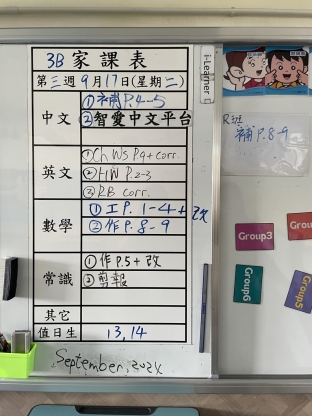 3B 家課表
第三週9月17日(星期二)
中文
①補P.4-5
②智愛中文平台
英文
①Ch WS P.9+corr.
②HW P.2-3
③RB corr.
數學
①工P.1-4+改
②作P.8-9
常識
①作P.5+改
②剪報
其它
值日生 13,14
September, 202X
i-Learner
R班
補P.8-9
Group3
Grou
Group6
Group5